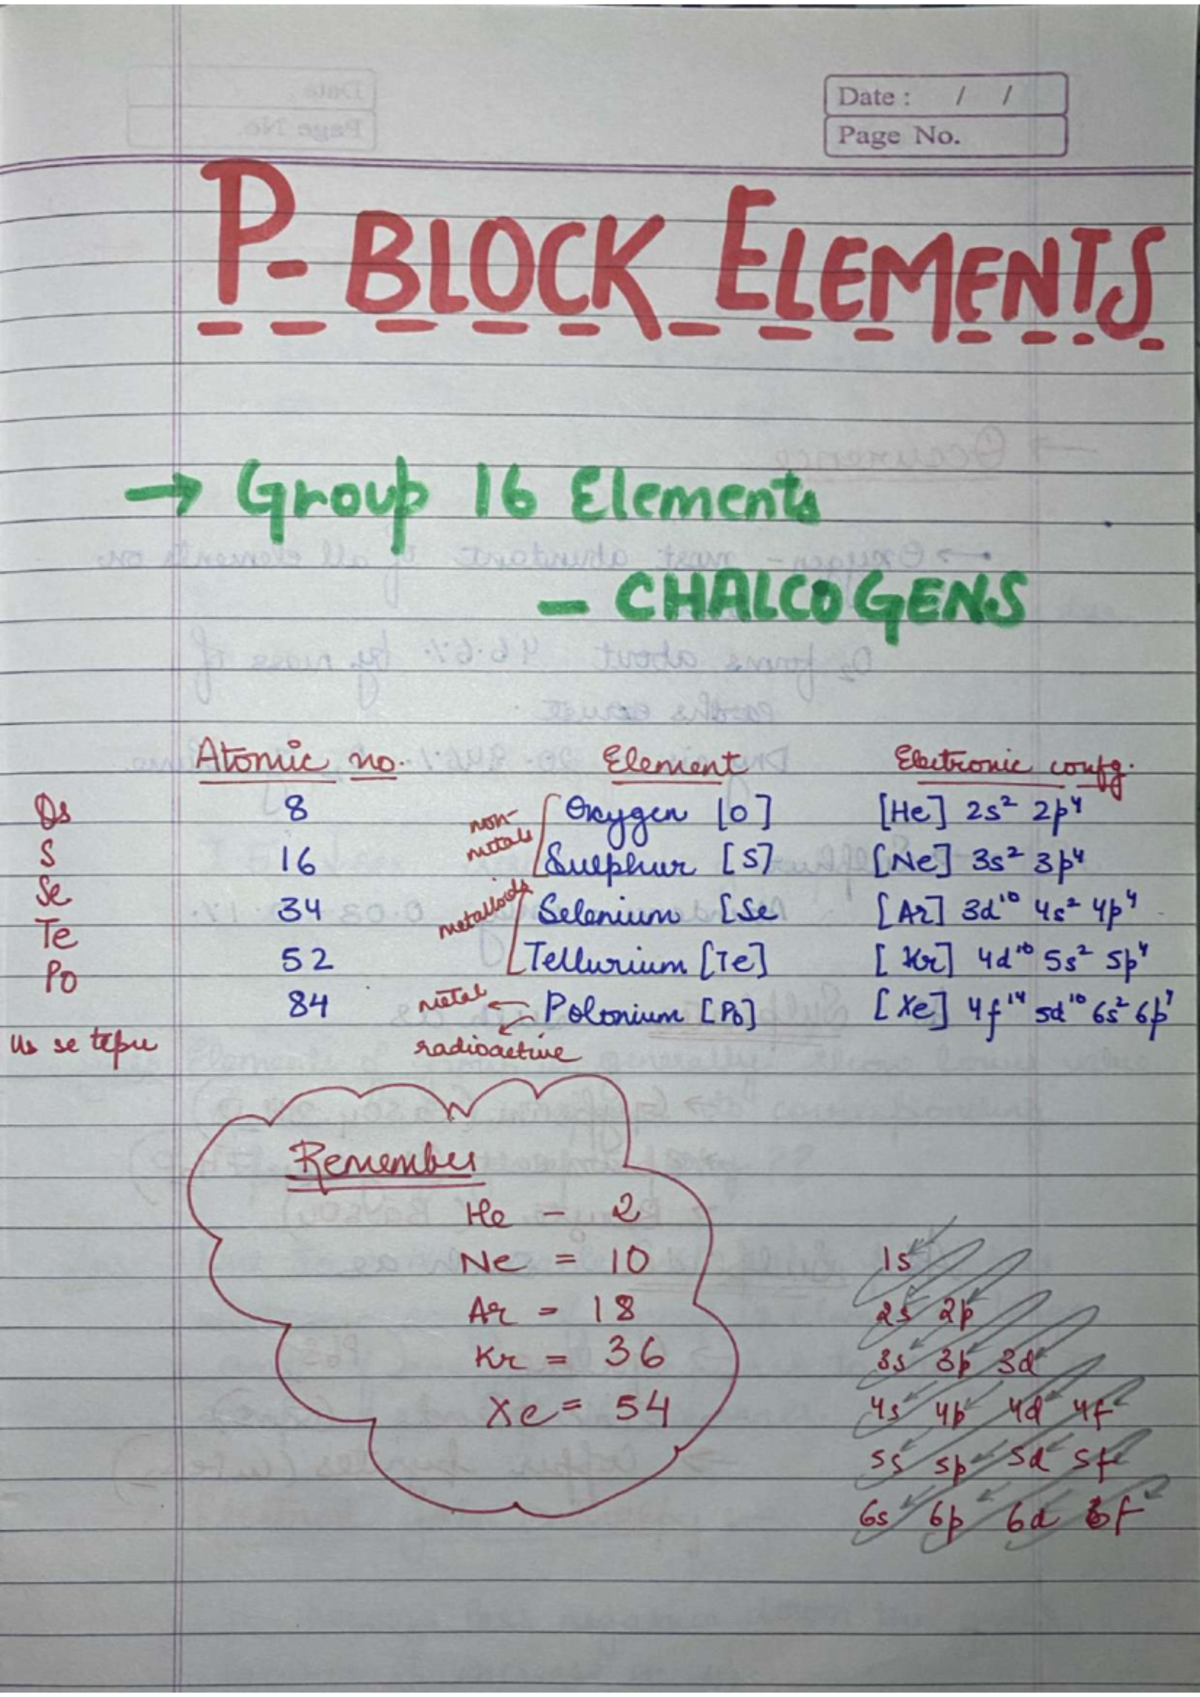 Date : / /
Page No.
P-BLOCK ELEMENTS
→ Group 16 Elements
- CHALCOGENS
Atomic no. Element Electronic config.
Os 8 non-metals Oxygen [O] [He] 2s² 2p⁴
S 16 Sulphur [S] [Ne] 3s² 3p⁴
Se 34 metalloids Selenium [Se [Ar] 3d¹⁰ 4s² 4p⁴
Te 52 Tellurium [Te] [Kr] 4d¹⁰ 5s² 5p⁴
Po 84 metal ← Polonium [Po] [Xe] 4f¹⁴ 5d¹⁰ 6s² 6p⁴
Us se tepu radioactive
Remember
He - 2
Ne = 10
Ar = 18
Kr = 36
Xe = 54
1s
2s 2p
3s 3p 3d
4s 4p 4d 4f
5s 5p 5d 5f
6s 6p 6d 6f